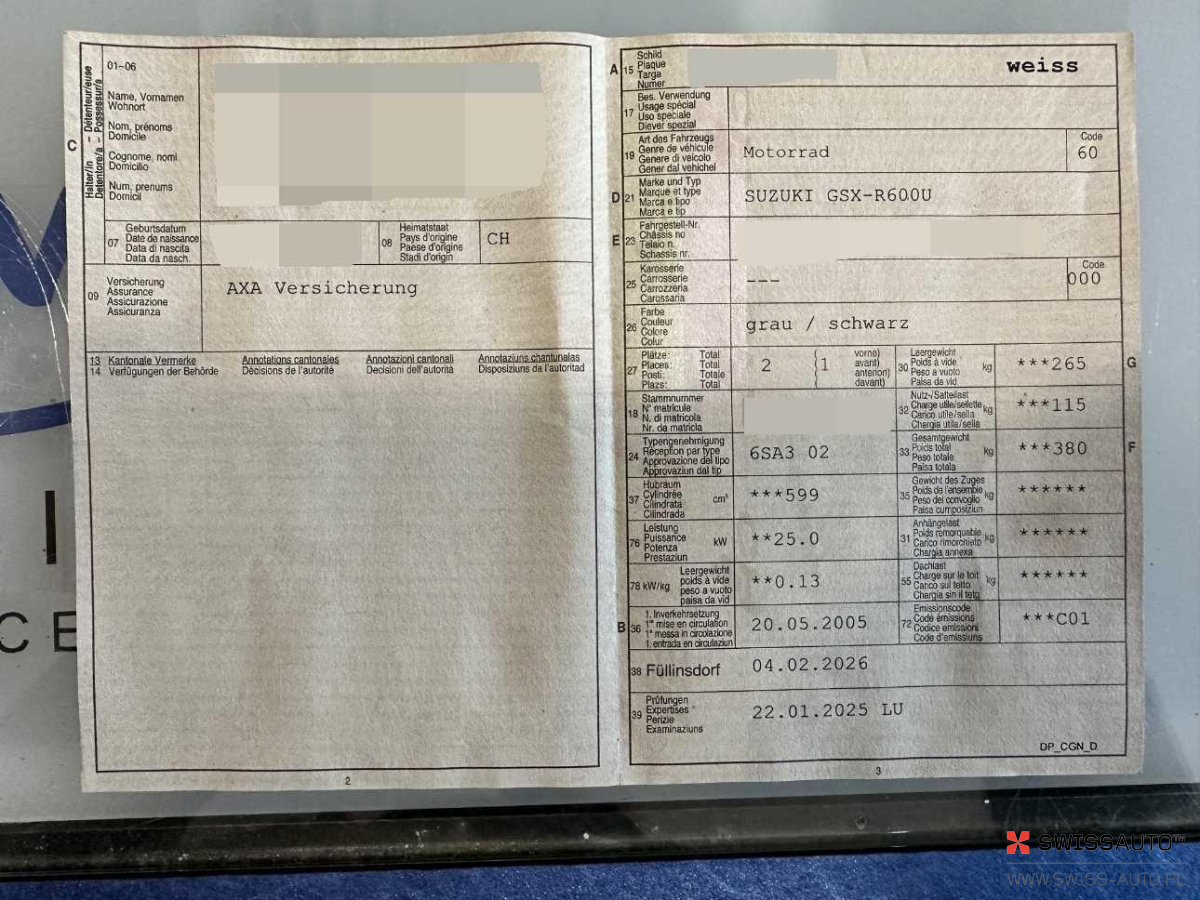 Halter/in – Détenteur/euse
Detentore/a – Possessur/a
C
01-06
Name, Vornamen
Wohnort
Nom, prénoms
Domicile
Cognome, nomi
Domicilio
Num, prenums
Domicil
07
Geburtsdatum
Date de naissance
Data di nascita
Data da nasch.
08
Heimatstaat
Pays d'origine
Paese d'origine
Stadi d'origin
CH
09
Versicherung
Assurance
Assicurazione
Assicuranza
AXA Versicherung
13 Kantonale Vermerke Annotations cantonales Annotazioni cantonali Annotaziuns chantunalas
14 Verfügungen der Behörde Décisions de l'autorité Decisioni dell'autorità Disposiziuns da l'autoritad
2
A 15
Schild
Plaque
Targa
Numer
weiss
17
Bes. Verwendung
Usage spécial
Uso speciale
Diever spezial
19
Art des Fahrzeugs
Genre de véhicule
Genere di veicolo
Gener dal vehichel
Motorrad
Code
60
D 21
Marke und Typ
Marque et type
Marca e tipo
Marca e tip
SUZUKI GSX-R600U
E 23
Fahrgestell-Nr.
Châssis no
Telaio n.
Schassis nr.
25
Karosserie
Carrosserie
Carrozzeria
Carossaria
---
Code
000
26
Farbe
Couleur
Colore
Colur
grau / schwarz
27
Plätze: Total
Places: Total
Posti: Totale
Plazs: Total
2 (1
vorne)
avant)
anteriori)
davant)
30
Leergewicht
Poids à vide
Peso a vuoto
Paisa da vid
kg
***265
G
18
Stammnummer
N° matricule
N. di matricola
Nr. da matricla
32
Nutz-/Sattellast
Charge utile/sellette
Carico utile/sella
Chargia utila/sella
kg
***115
24
Typengenehmigung
Réception par type
Approvazione del tipo
Approvaziun dal tip
6SA3 02
33
Gesamtgewicht
Poids total
Peso totale
Paisa totala
kg
***380
F
37
Hubraum
Cylindrée
Cilindrata
Cilindrada
cm³
***599
35
Gewicht des Zuges
Poids de l'ensemble
Peso del convoglio
Paisa cumposiziun
kg
******
76
Leistung
Puissance
Potenza
Prestaziun
kW
**25.0
31
Anhängelast
Poids remorquable
Carico rimorchiato
Chargia annexa
kg
******
78 kW/kg
Leergewicht
poids à vide
peso a vuoto
paisa da vid
**0.13
55
Dachlast
Charge sur le toit
Carico sul tetto
Chargia sin il tetg
kg
******
B 36
1. Inverkehrsetzung
1re mise en circulation
1a messa in circolazione
1. entrada en circulaziun
20.05.2005
72
Emissionscode
Code émissions
Codice emissioni
Code d'emissiuns
***C01
38 Füllinsdorf 04.02.2026
39
Prüfungen
Expertises
Perizie
Examinaziuns
22.01.2025 LU
DP_CGN_D
3
I
CE
SWISSAUTO
WWW.SWISS-AUTO.PL